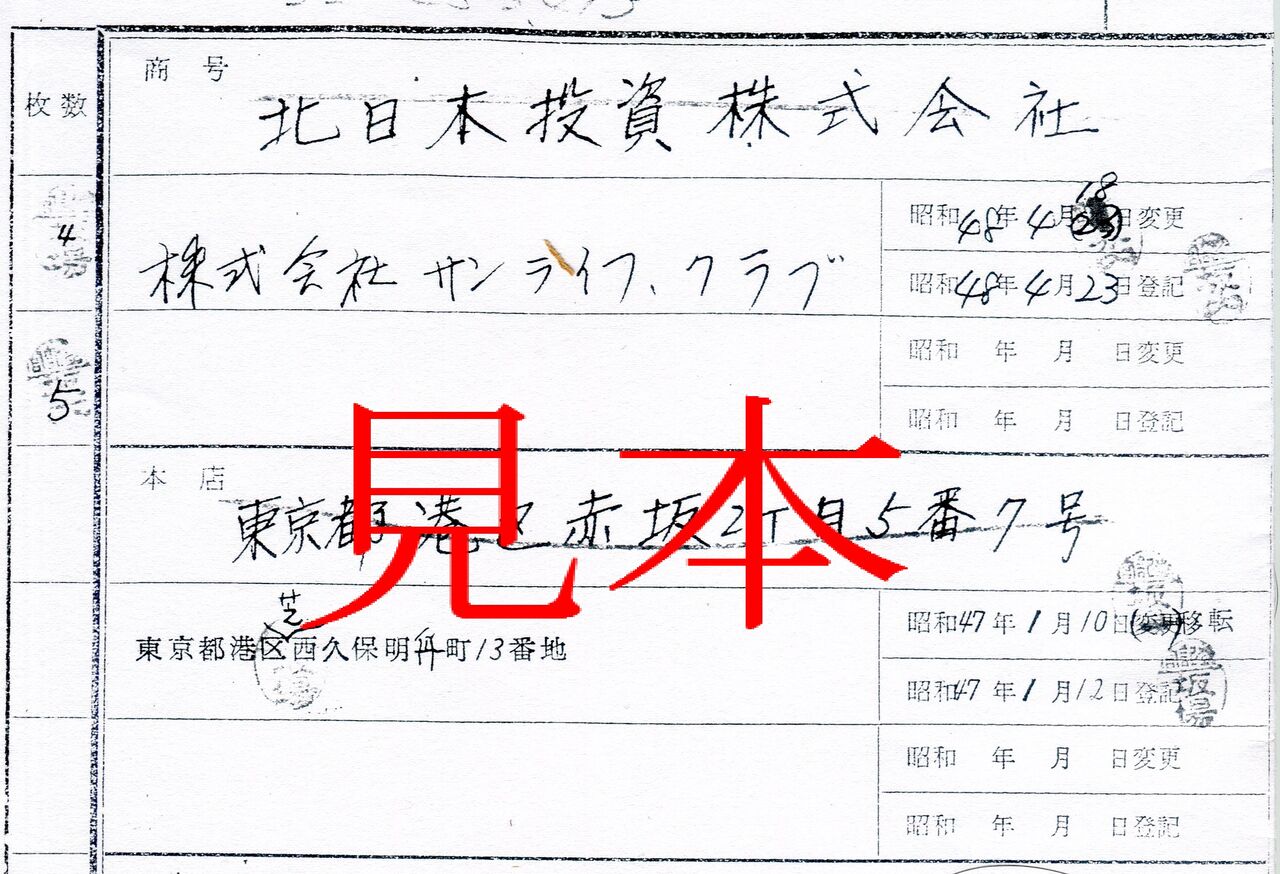 枚数
4
5
商号
北日本投資株式会社
株式会社サンライフ、クラブ
昭和48年4月18(23)日変更
昭和48年4月23日登記
昭和 年 月 日変更
昭和 年 月 日登記
本店
東京都港区赤坂2丁目5番7号
芝
東京都港区西久保明舟町13番地
昭和47年1月10日(変更)移転
昭和47年1月12日登記
昭和 年 月 日変更
昭和 年 月 日登記
見本